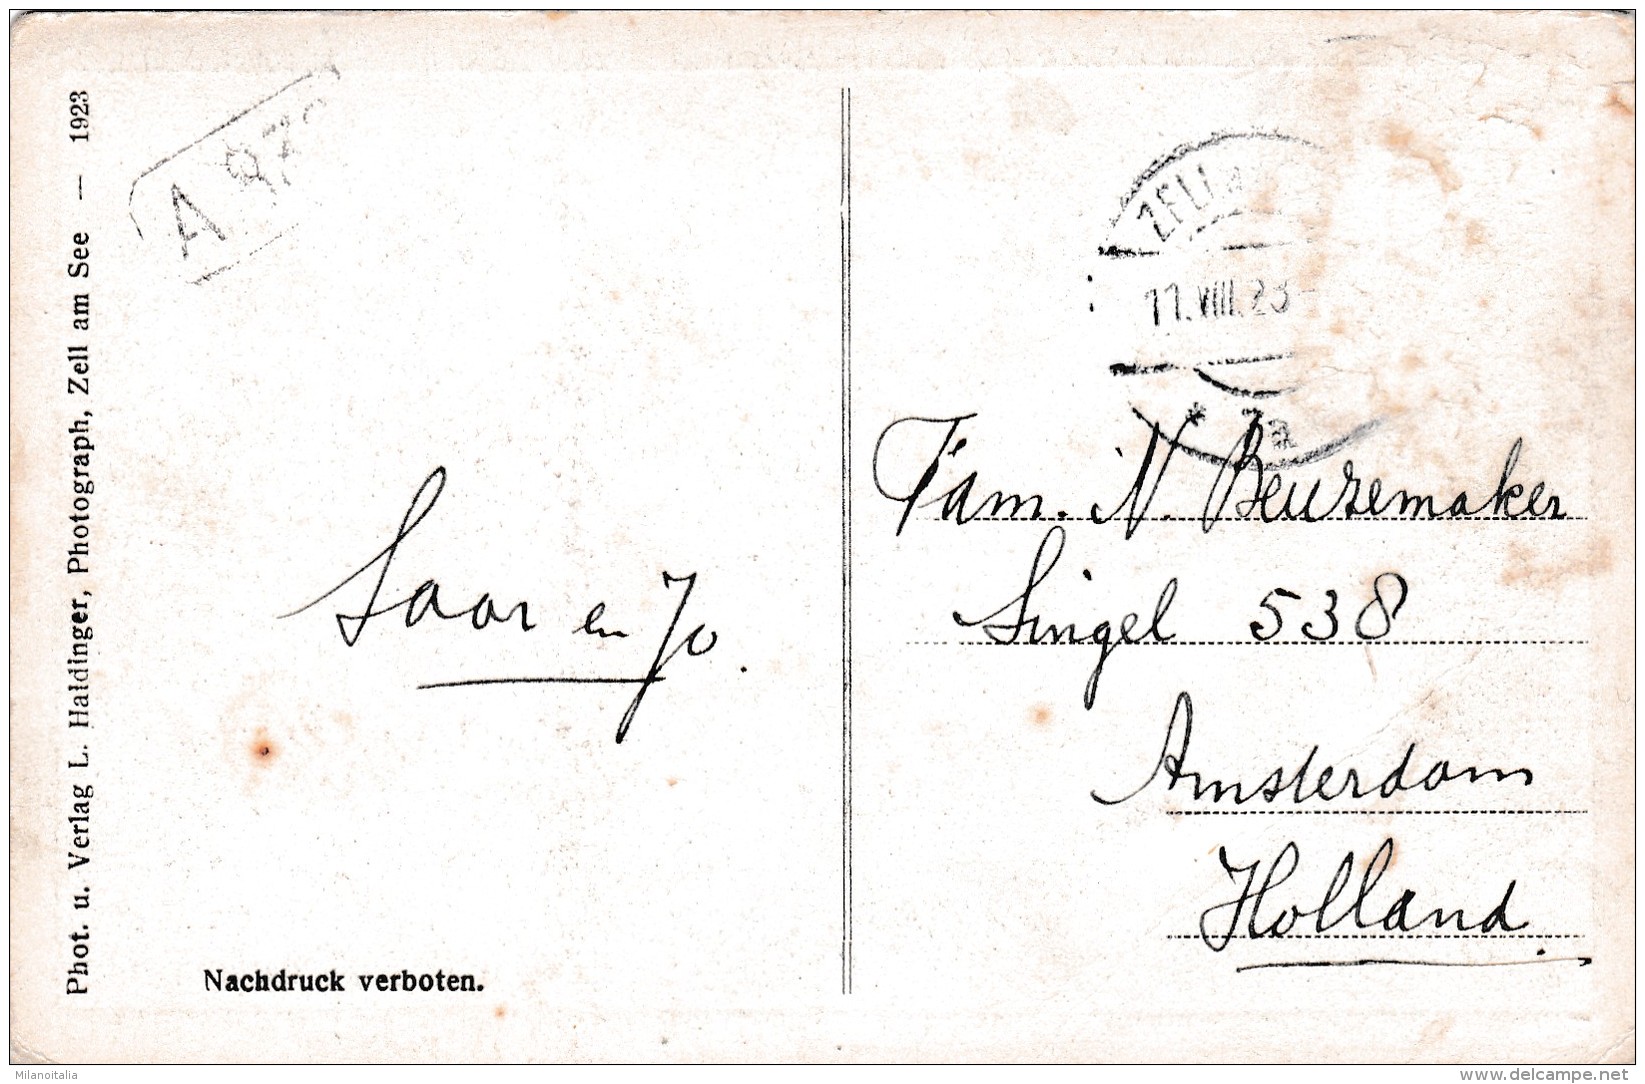 Phot. u. Verlag L. Haidinger, Photograph, Zell am See — 1923
A
ZELL
11.VIII.23
* 7a
Fam. N. Beuzemaker
Singel 538
Amsterdam
Holland.
Saar en Jo.
Nachdruck verboten.
Milanoitalia
www.delcampe.net